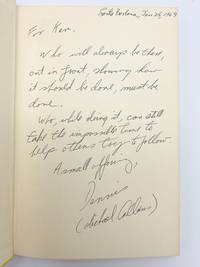 Santa Barbara, Jan 25, 1969
For Ken.
Who will always be there,
out in front, showing how
it should be done, must be
done.
Who, while doing it, can still
take the impossible time to
help others try to follow
A small offering,
Dennis
(Michael Collins)